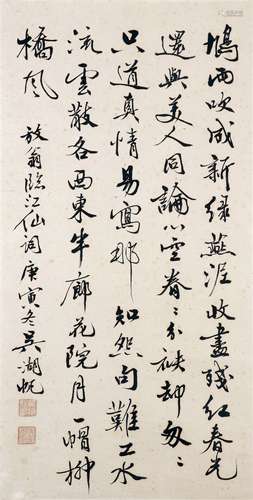 鳩雨吹成新綠燕泥收盡殘紅春光
還與美人同論心空眷眷分袂却匆匆
只道真情易寫那知怨句難工水
流雲散各西東半廊花院月一帽柳
橋風
放翁臨江仙詞庚寅冬吳湖帆